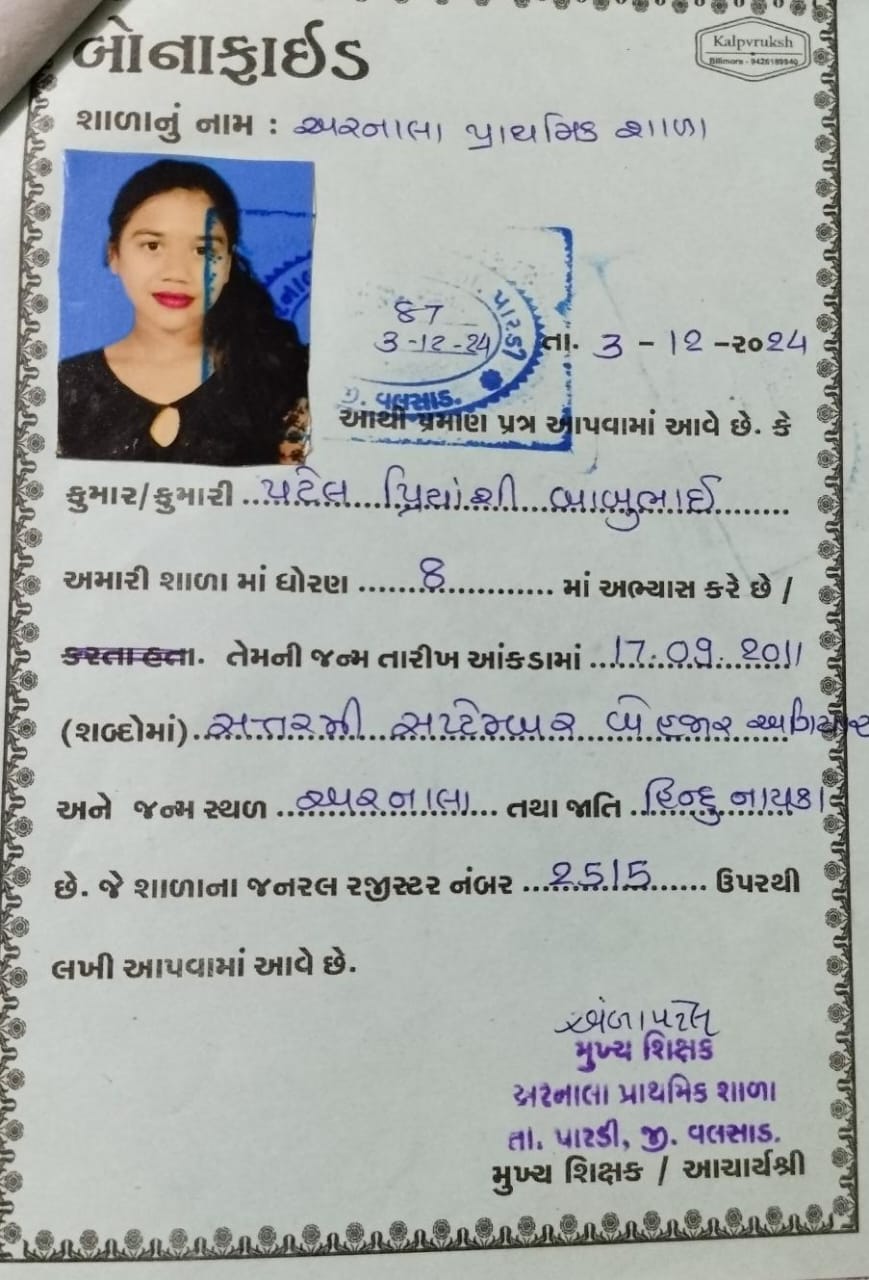 બોનાફાઈડ
Kalpvruksh
Billimora - 9426189940
શાળાનું નામ : અરનાલા પ્રાથમિક શાળા
પારડી
જી. વલસાડ.
87
3-12-24
તા. 3 - 12 -૨૦24
આથી પ્રમાણ પ્રત્ર આપવામાં આવે છે. કે
કુમાર/કુમારી ..પટેલ પ્રિયાંશી બાબુભાઈ
અમારી શાળા માં ધોરણ ......8......... માં અભ્યાસ કરે છે /
કરતા હતા. તેમની જન્મ તારીખ આંકડામાં ...17.09.2011
(શબ્દોમાં)..સત્તરમી સપ્ટેમ્બર બે હજાર અગિયાર
અને જન્મ સ્થળ ...અરનાલા... તથા જાતિ ..હિન્દુ નાયકા
છે. જે શાળાના જનરલ રજીસ્ટર નંબર ...2515...... ઉપરથી
લખી આપવામાં આવે છે.
મુખ્ય શિક્ષક
અરનાલા પ્રાથમિક શાળા
તા. પારડી, જી. વલસાડ.
મુખ્ય શિક્ષક / આચાર્યશ્રી